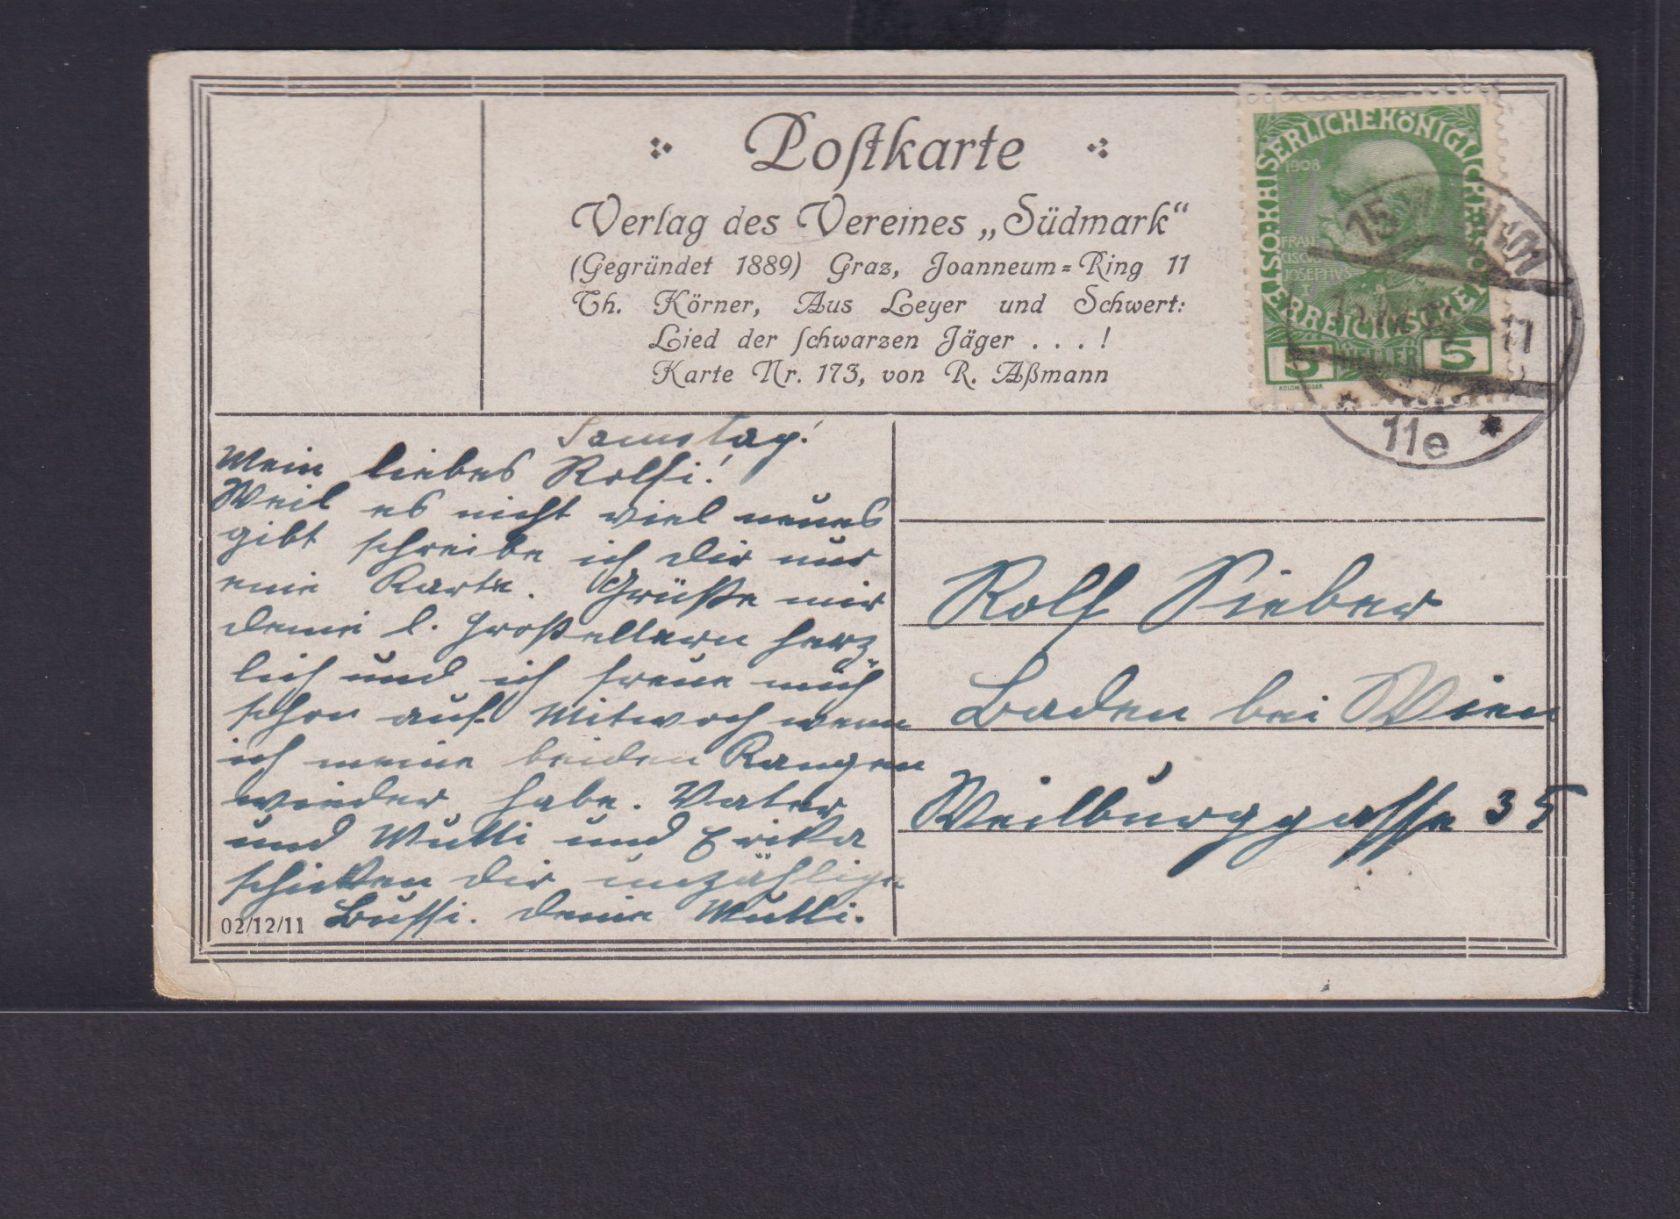 Postkarte
Verlag des Vereines „Südmark“
(Gegründet 1889) Graz, Joanneum=Ring 11
Th. Körner, Aus Leyer und Schwert:
Lied der schwarzen Jäger . . . !
Karte Nr. 173, von R. Aßmann
KAISERLICHEKÖNIGLICHE
ÖSTERREICHISCHE
1908
FRAN
CISCVS
IOSEPHVS
I
5 HELLER 5
15
11e
Samstag!
Mein liebes Rolfi!
Weil es nicht viel neues
gibt schreibe ich dir nur
eine Karte. Grüße mir
deine l. Großeltern herz
lich und ich freue mich
schon auf Mitwoch wenn
ich meine beiden Rangen
wieder habe. Vater
und Mutti und Erika
schicken dir unzählige
Bussi. deine Mutti.
02/12/11
Rolf Sieber
Baden bei Wien
Weilburggasse 35